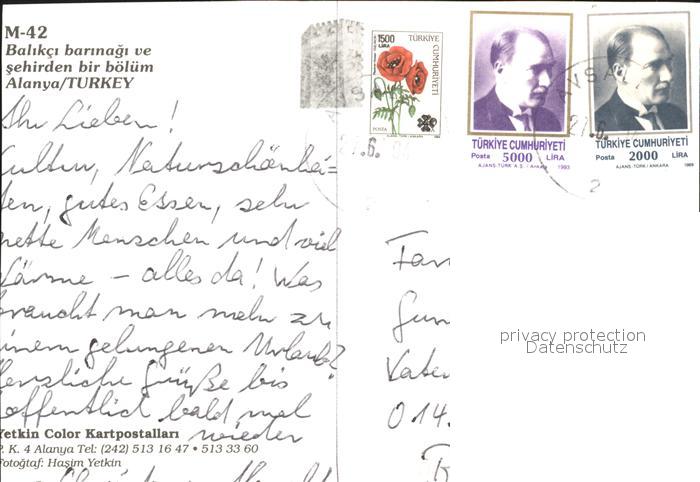 M-42
Balıkçı barınağı ve
şehirden bir bölüm
Alanya/TURKEY
Ihr Lieben!
Kultur, Naturschönhei=
ten, gutes Essen, sehr
nette Menschen und viel
Wärme – alles da! Was
braucht man mehr zu
einem gelungenen Urlaub?
Herzliche Grüße bis
hoffentlich bald mal
wieder
Yetkin Color Kartpostalları
P. K. 4 Alanya Tel: (242) 513 16 47 • 513 33 60
Fotoğraf: Haşim Yetkin
1500
LİRA
TÜRKİYE
CUMHURİYETİ
POSTA
TÜRKİYE CUMHURİYETİ
Posta 5000 LİRA
AJANS-TÜRK A.Ş. / Ankara 1993
TÜRKİYE CUMHURİYETİ
Posta 2000 LİRA
AJANS-TÜRK / ANKARA 1989
27.6.
27.6.
2
Fam
Vater
014.
privacy protection
Datenschutz